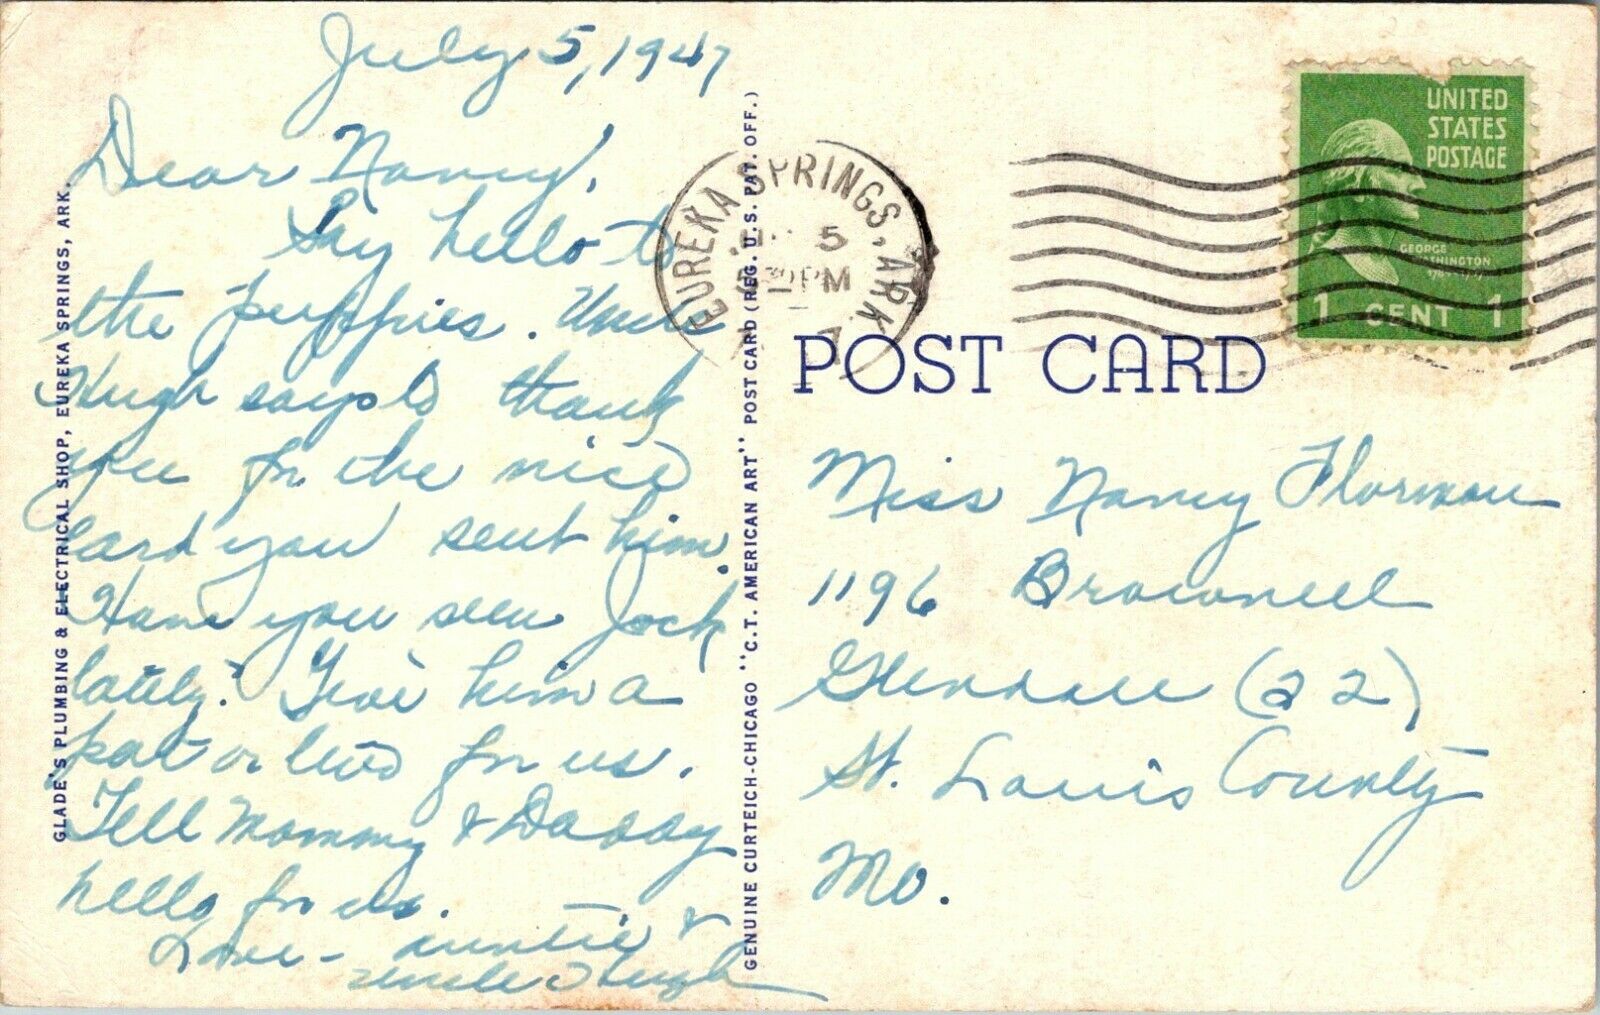 July 5, 1947
Dear Nancy,
Say hello to
the puppies. Uncle
Hugh says to thank
you for the nice
card you sent him.
Have you seen Jock
lately? Give him a
pat or two for us.
Tell Mommy & Daddy
hello for us.
Love - Auntie &
Uncle Hugh
GLADE'S PLUMBING & ELECTRICAL SHOP, EUREKA SPRINGS, ARK.
GENUINE CURTEICH-CHICAGO "C.T. AMERICAN ART" POST CARD (REG. U.S. PAT. OFF.)
EUREKA SPRINGS, ARK.
5
PM
UNITED
STATES
POSTAGE
GEORGE
WASHINGTON
1 CENT 1
POST CARD
Miss Nancy Florman
1196 Brownell
Glendale (22)
St. Louis County
Mo.